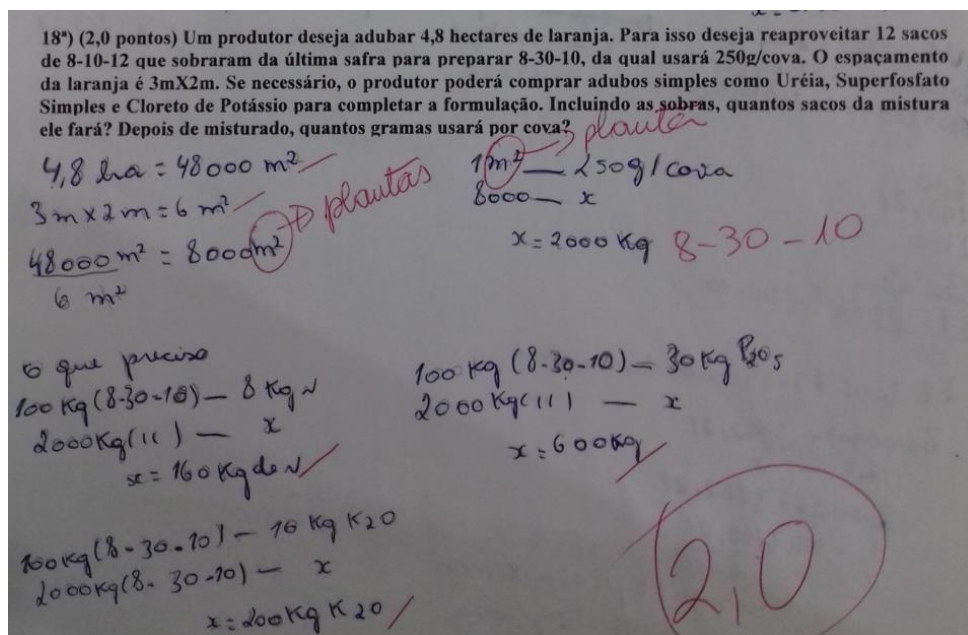 18ª) (2,0 pontos) Um produtor deseja adubar 4,8 hectares de laranja. Para isso deseja reaproveitar 12 sacos
de 8-10-12 que sobraram da última safra para preparar 8-30-10, da qual usará 250g/cova. O espaçamento
da laranja é 3mX2m. Se necessário, o produtor poderá comprar adubos simples como Uréia, Superfosfato
Simples e Cloreto de Potássio para completar a formulação. Incluindo as sobras, quantos sacos da mistura
ele fará? Depois de misturado, quantos gramas usará por cova?
planta
4,8 ha = 48000 m²
1 m² — 250g/cova
plantas
3m x 2m = 6 m²
8000 — x
48000 m² = 8000 m²
6 m²
x = 2000 Kg 8-30-10
o que preciso
100 Kg (8-30-10) — 8 Kg N
2000Kg (11) — x
x = 160 Kg de N
100 Kg (8-30-10) — 30 Kg P2O5
2000Kg (11) — x
x = 600Kg
100Kg (8-30-10) — 10 Kg K2O
2000Kg (8-30-10) — x
x = 200Kg K2O
2,0